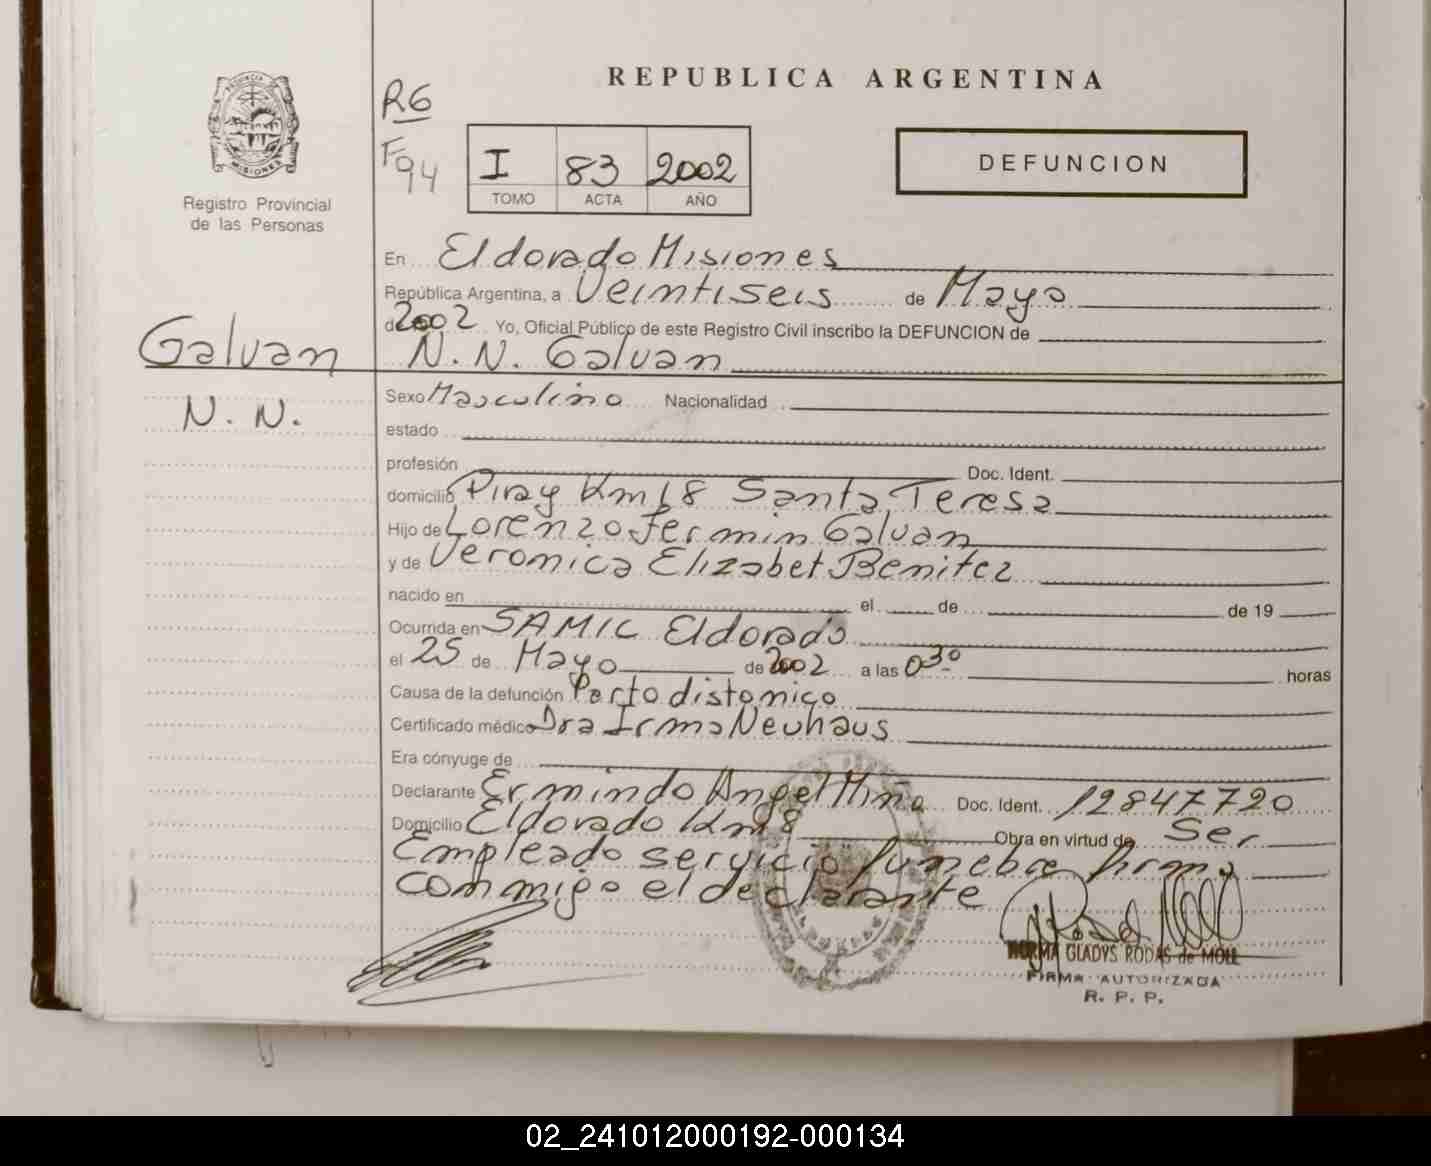 REPUBLICA ARGENTINA
PROVINCIA
MISIONES
Registro Provincial
de las Personas
R6
F94
I 83 2002
TOMO ACTA AÑO
DEFUNCION
En Eldorado Misiones
República Argentina, a Veintiseis de Mayo
de 2002 Yo, Oficial Público de este Registro Civil inscribo la DEFUNCION de
Galvan
N.N.
N.N. Galvan
Sexo Masculino Nacionalidad
estado
profesión Doc. Ident.
domicilio Piray Km 18 Santa Teresa
Hijo de Lorenzo Fermin Galvan
y de Veronica Elizabet Benitez
nacido en el de de 19
Ocurrida en SAMIC Eldorado
el 25 de Mayo de 2002 a las 03º horas
Causa de la defunción Parto distonico
Certificado médico Dra Irma Neuhaus
Era cónyuge de
Declarante Ermindo Angel Miño Doc. Ident. 12847720
Domicilio Eldorado Km 8 Obra en virtud de Ser
Empleado servicio funebre firma
conmigo el declarante
NORMA GLADYS RODAS de MOLL
FIRMA AUTORIZADA
R. P. P.
02_241012000192-000134